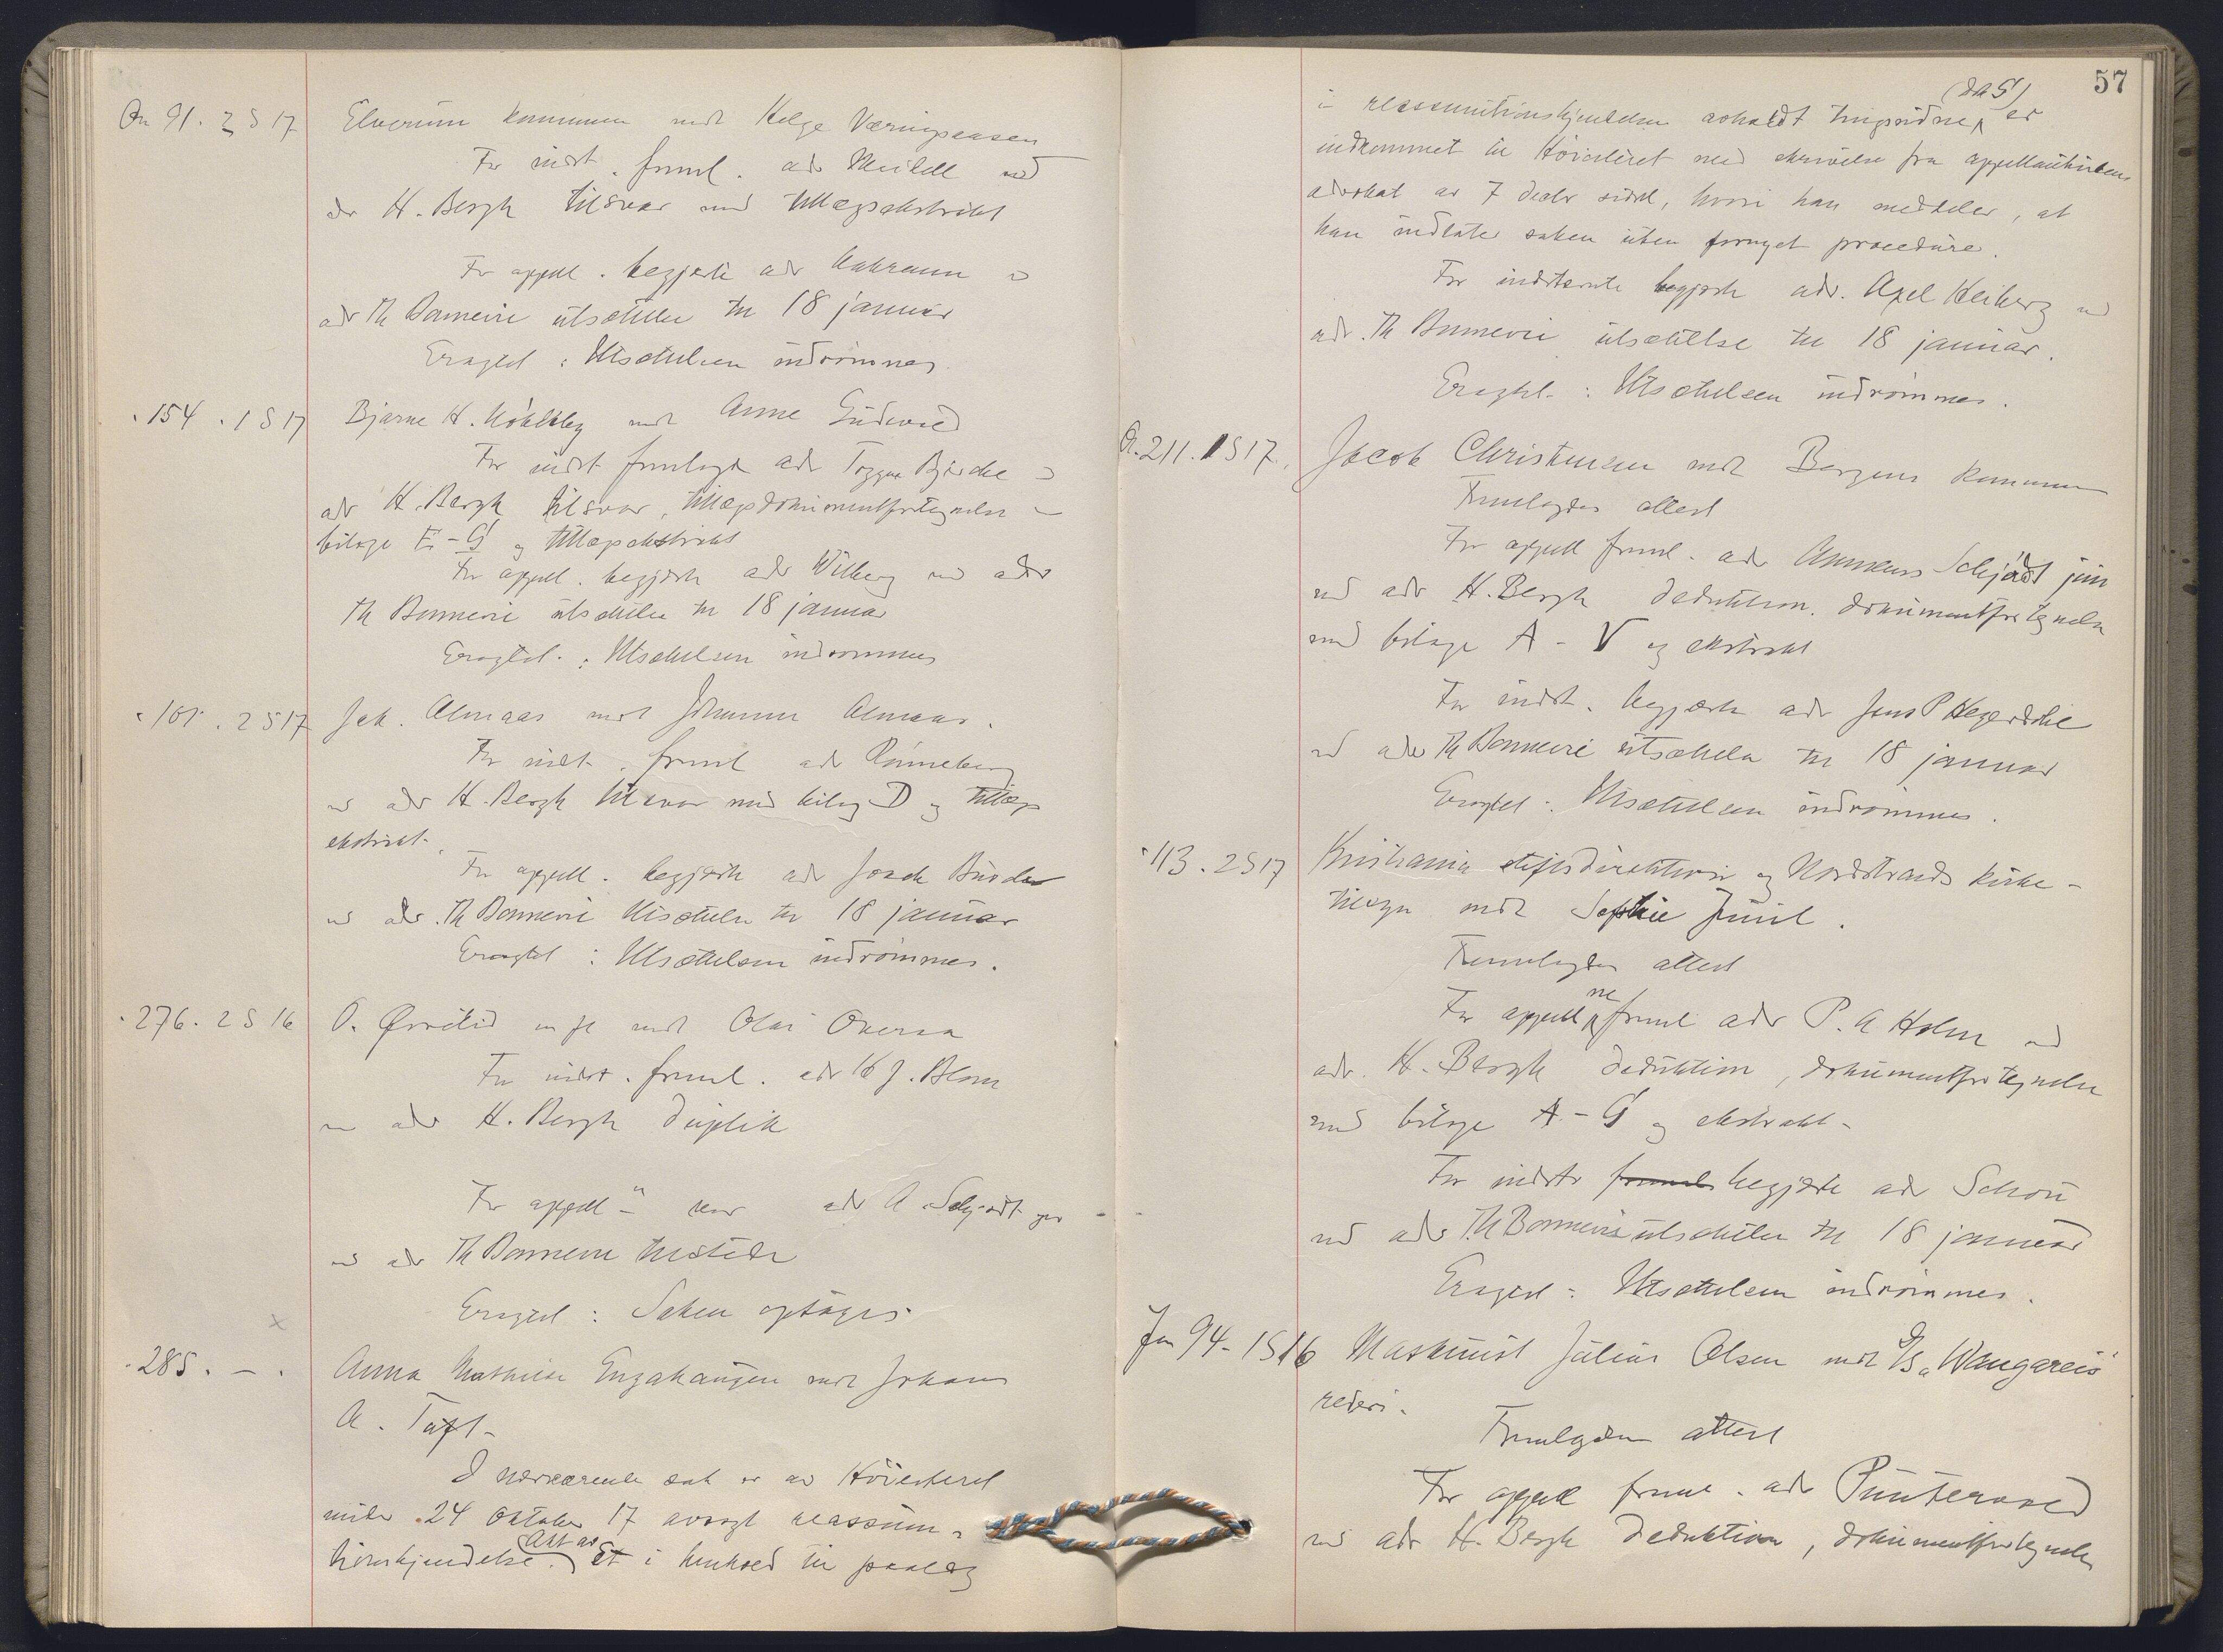 An 91. 2 S 17 Elverum kommune mot Helge Væringsaasen
For indst. freml. adv Meidell ved
adv H. Bergh tilsvar med tillægsekstrakt
For appell. begjærte adv
adv Th Bonnevie utsættelse til 18 januar
Eragted: Utsættelsen indrømmes.
" 154. 1 S 17 Bjarne H. mot Anne Gudevold
For indst fremlagde adv Trygve Bjerche v
adv H. Bergh tilsvar, tillægsdokumentfortegnelse
bilage E - G og tillægsekstrakt
For appell. begjærte adv Wilberg ved adv
Th Bonnevie utsættelse til 18 januar
Eragted: Utsættelsen indrømmes
" 101. 2 S 17 Joh. Almaas mot Johanne Almaas.
For indst. freml adv Rönneberg
ved adv H. Bergh tilsvar med bilag D og tillægs
ekstrakt.
For appell. begjærte adv
ved adv. Th Bonnevie Utsættelse til 18 januar
Eragted: Utsættelsen indrømmes.
" 276. 2 S 16 O. mfl mot Olai
For indst. freml. adv K J. Blom
ved adv H. Bergh duplik
For appell - var adv A Schjødt jun
ved adv Th Bonnevie tilstede
Eragted: Saken optages.
x
" 285. - . Anna Mathilde Engahaugen mot Johans
A. Tuft -
I nærværende sak er av Høiesteret
under 24 oktober 17 avsagt reassum-
tionskjendelse. (Akt av) Et i henhold til paalæg
57
i reassumtionskjendelsen avholdt tingsvidne, (das) er
indkommet til Høiesteret med skrivelse fra appellantindens
advokat av 7 decbr sidstl, hvori han meddeler, at
han indlater saken uten fornyet procedure.
For indstevnte begjærte adv. Axel Heiberg ved
adv. Th Bonnevie utsættelse til 18 januar.
Eragted: Utsættelsen indrømmes.
A. 211. 1 S 17. Jacob Christensen mot Bergens kommune
Fremlagdes attest
For appell freml. adv Annæus Schjødt jun
ved adv H. Bergh deduktion, dokumentfortegnelse
med bilage A - V og ekstrakt
For indst. begjærte adv Jens P Hegerdahl
ved adv Th Bonnevie utsættelse til 18 januar
Eragted: Utsættelsen indrømmes.
" 113. 2 S 17 Kristiania stiftsdirektion og Nordstrands kirke-
tilsyn mot Sophie Juul.
Fremlagdes attest
For appell ne freml adv P. A Holm ved
adv. H. Bergh deduktion, dokumentfortegnelse
med bilage A - G og ekstrakt -
For indst freml begjærte adv Schou
ved adv Th Bonnevie utsættelse til 18 januar
Eragted: Utsættelsen indrømmes.
Jan 94 - 1 S 16 Maskinist Julius Olsen mot D/S „Wangareis"
rederi.
Fremlagdes attest
For appell freml. adv Puntervold
ved adv H. Bergh deduktion, dokumentfortegnelse